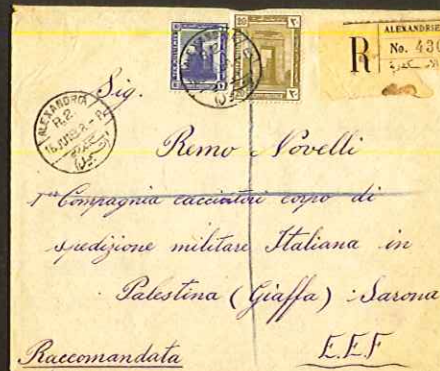 ALEXANDRIE
R No. 430
ALEXANDRIA
R.2.
Sig.
Remo Novelli
1ª Compagnia cacciatori corpo di
spedizione militare Italiana in
Palestina (Giaffa) : Sarona
Raccomandata E.E.F